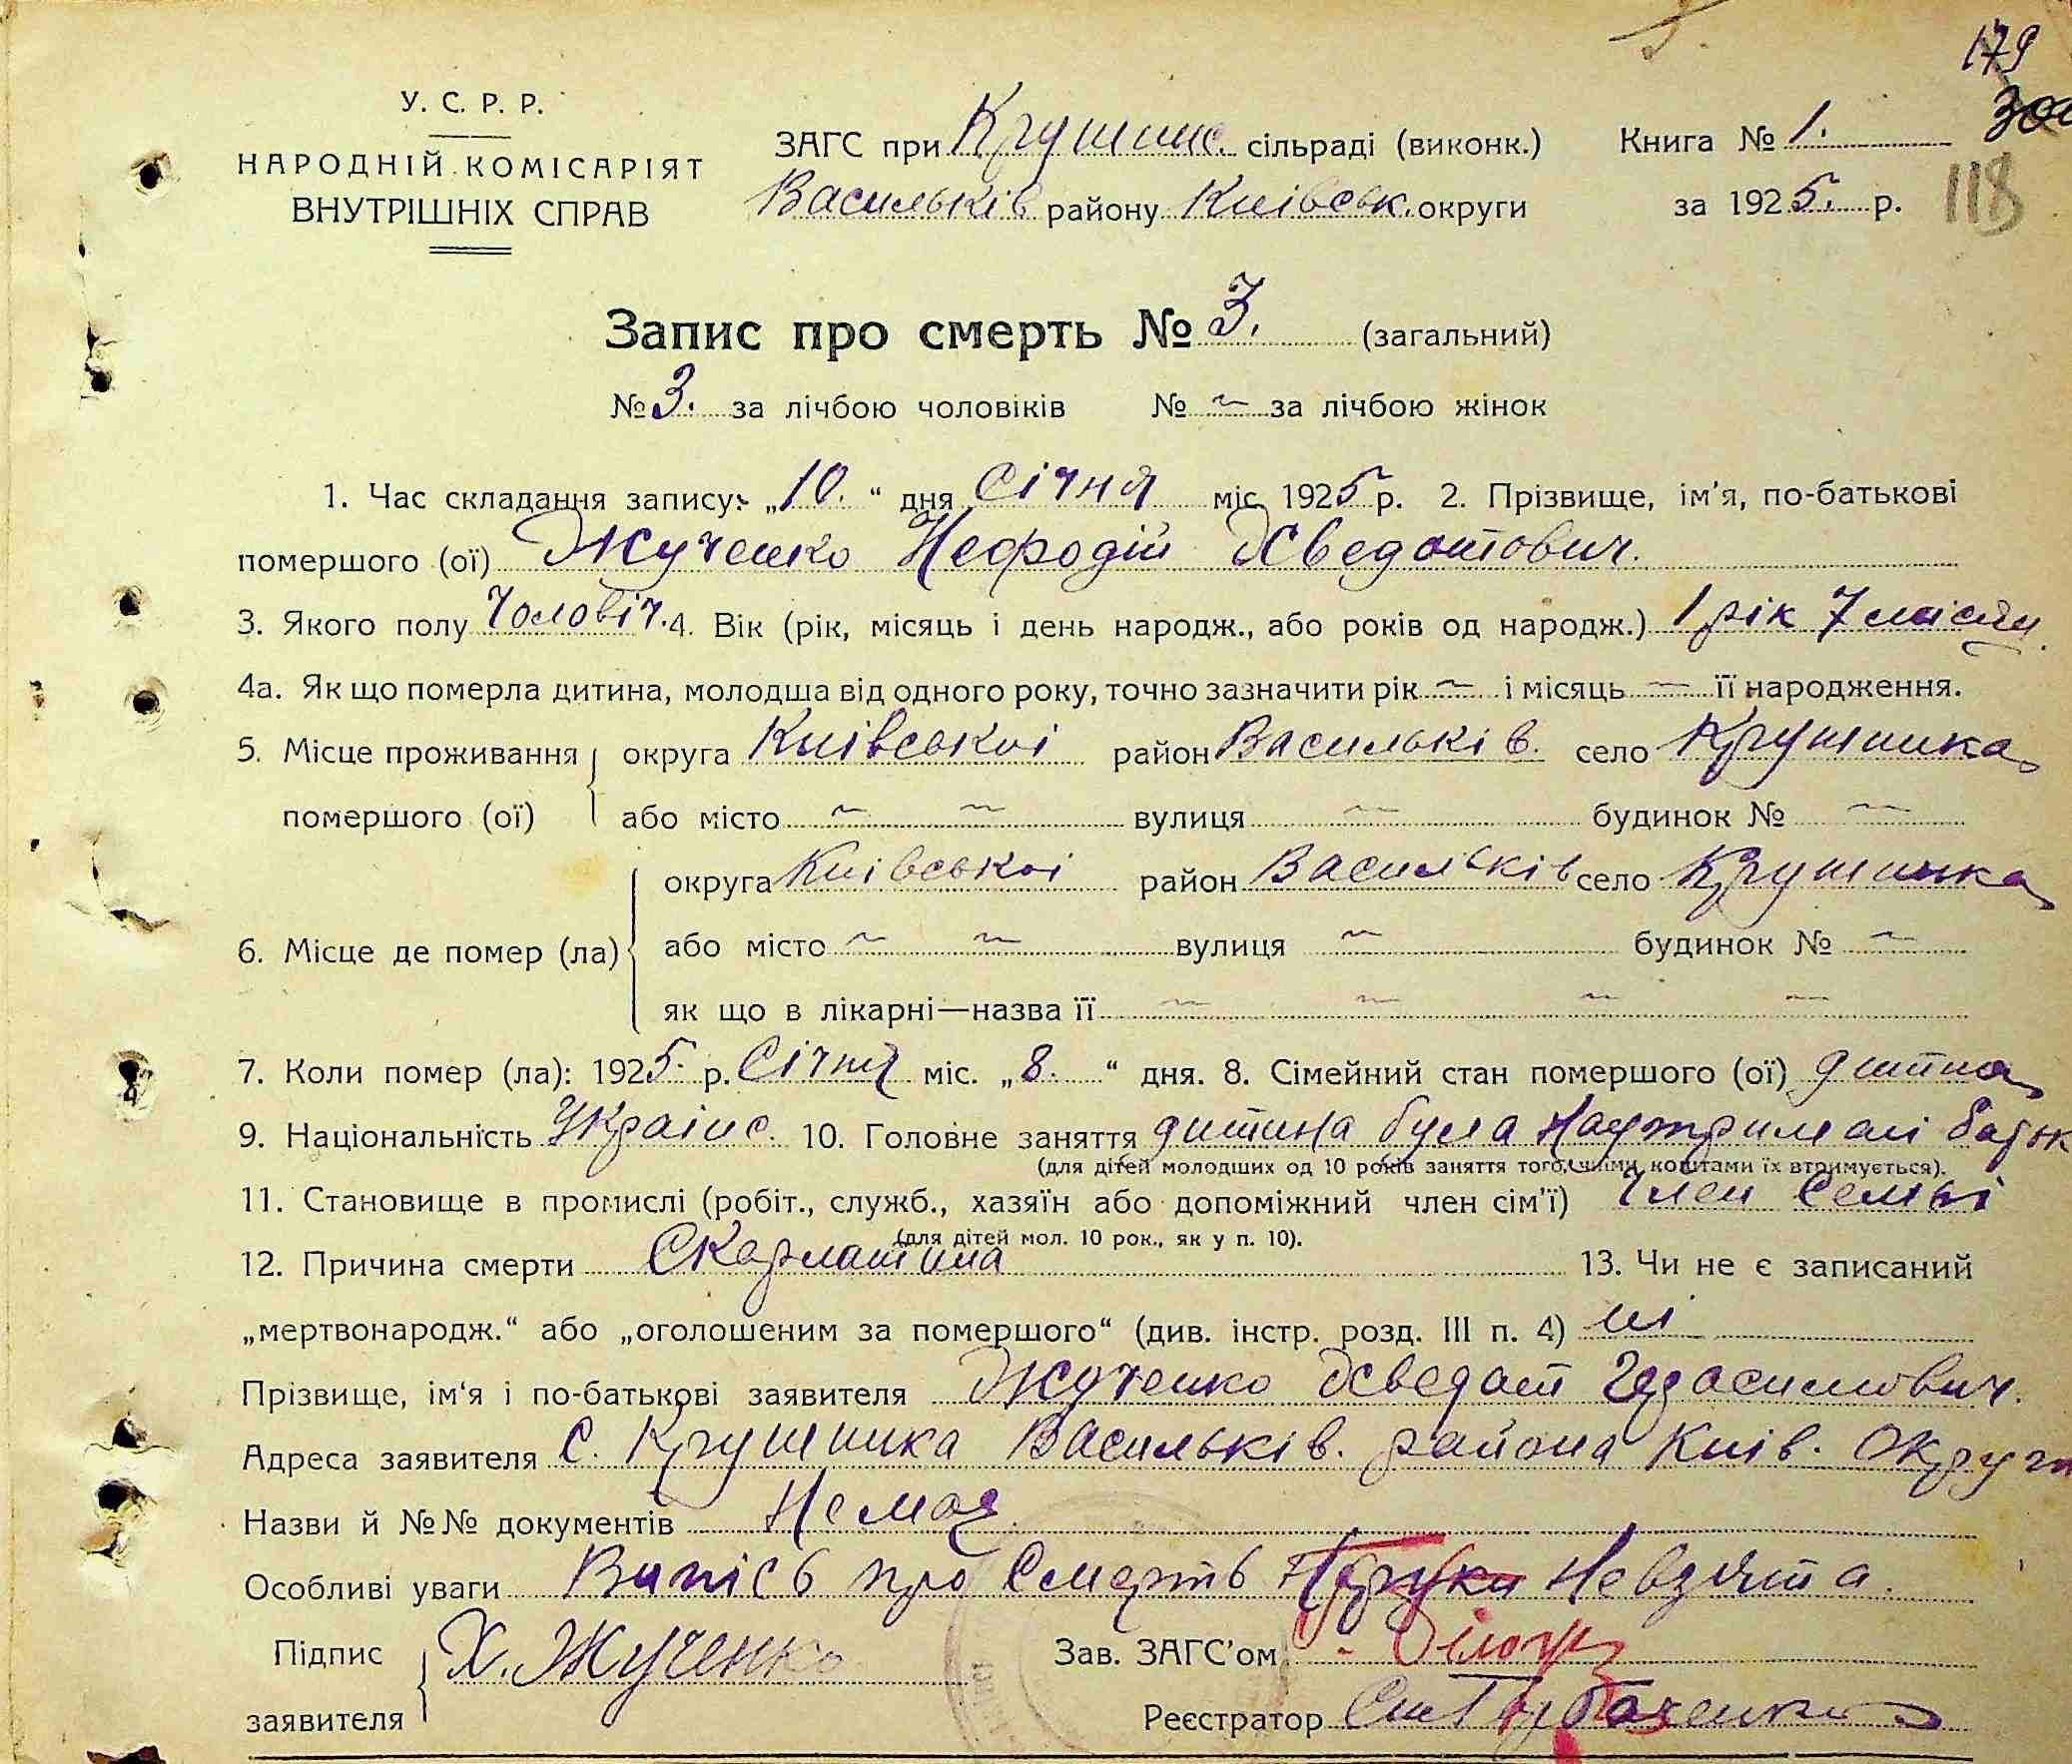 179
У. С. Р. Р.
НАРОДНІЙ КОМІСАРІЯТ
ВНУТРІШНІХ СПРАВ
ЗАГС при Крушинс. сільраді (виконк.)
Васильків району Київськ. округи
Книга № 1.
за 1925. р.
118
Запис про смерть № 3. (загальний)
№ 3. за лічбою чоловіків № ~ за лічбою жінок
1. Час складання запису: „10.“ дня Січня міс. 1925 р. 2. Прізвище, ім'я, по-батькові
помершого (ої) Жученко Нефодій Хведотович.
3. Якого полу Чоловіч. 4. Вік (рік, місяць і день народж., або років од народж.) 1 рік 7 місяц.
4а. Як що померла дитина, молодша від одного року, точно зазначити рік ~ і місяць ~ її народження.
5. Місце проживання округа Київськоі район Васильків. село Крушинка
помершого (ої) або місто ~ ~ вулиця ~ будинок № ~
округа Київськоі район Васильків село Крушинка
6. Місце де помер (ла) або місто ~ ~ вулиця ~ будинок № ~
як що в лікарні—назва її ~ ~ ~ ~
7. Коли помер (ла): 1925. р. Січня міс. „8.“ дня. 8. Сімейний стан помершого (ої) дитина
9. Національність Украінс. 10. Головне заняття дитина була на
(для дітей молодших од 10 років заняття того, чиїми коштами їх втримується).
11. Становище в промислі (робіт., служб., хазяїн або допоміжний член сім'ї) Член Семьі
(для дітей мол. 10 рок., як у п. 10).
12. Причина смерти Скарлатина 13. Чи не є записаний
„мертвонародж.“ або „оголошеним за помершого“ (див. інстр. розд. III п. 4) ні
Прізвище, ім'я і по-батькові заявителя Жученко Хведот Герасимович.
Адреса заявителя С. Крушинка Васильків. района Киів. Округи
Назви й №№ документів Немая
Особливі уваги Випісь про Смерть Невзята.
Підпис
заявителя Х. Жученко
Зав. ЗАГС'ом Білоус
Реєстратор